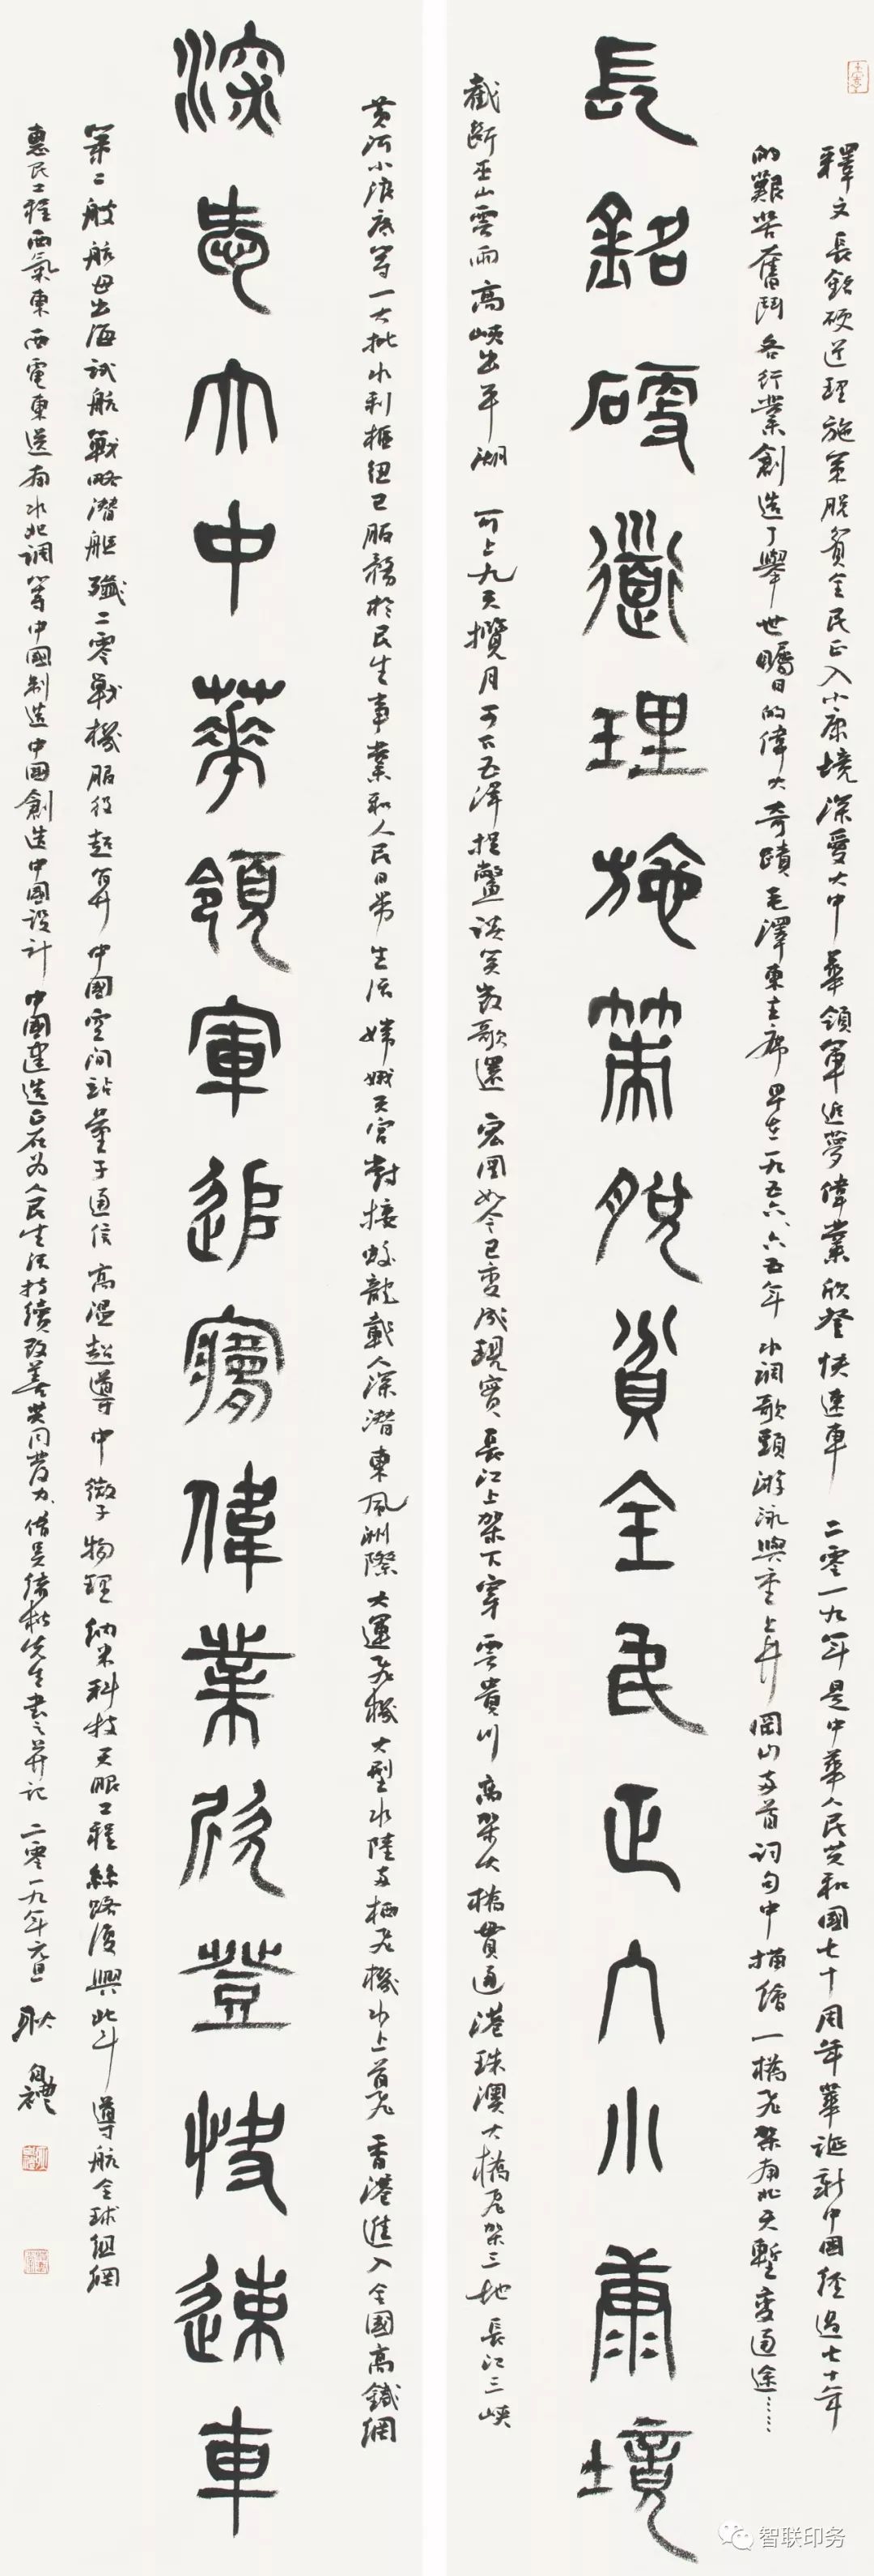 釋文 長銘硬道理施策脫貧全民正入小康境深愛大中華領軍追夢偉業欣登快速車 二零一九年是中華人民共和國七十周年華誕新中國經過七十年
的艱苦奮鬥各行業創造了舉世矚目的偉大奇蹟毛澤東主席早在一九五六、六五年水調歌頭游泳與重上井岡山兩首詞句中描繪一橋飛架南北天塹變通途……
長銘硬道理施策脫貧全民正入小康境
截斷巫山雲雨高峽出平湖 可上九天攬月可下五洋捉鱉談笑凱歌還 宏圖如今已變成現實長江上架下穿雲貴川高架大橋貫通港珠澳大橋飛架三地長江三峽
黄河小浪底等一大批水利樞紐已服務於民生事業和人民日常生活嫦娥天宮對接蛟龍載人深潛東風洲際大運飛機大型水陸兩栖飛機水上首飛香港進入全國高鐵網
深愛大中華領軍追夢偉業欣登快速車
第二艘航母出海試航戰略潛艇殲二零戰機服役超算中國空間站量子通信高溫超導中微子物理納米科技天眼工程絲路復興北斗導航全球組網
惠民工程西氣東西電東送南水北調等中國制造中國創造中國設計中國建造正在为人民生活持續改善共同發力借吳先生書之并記二零一九年元旦耿自禮
智联印务